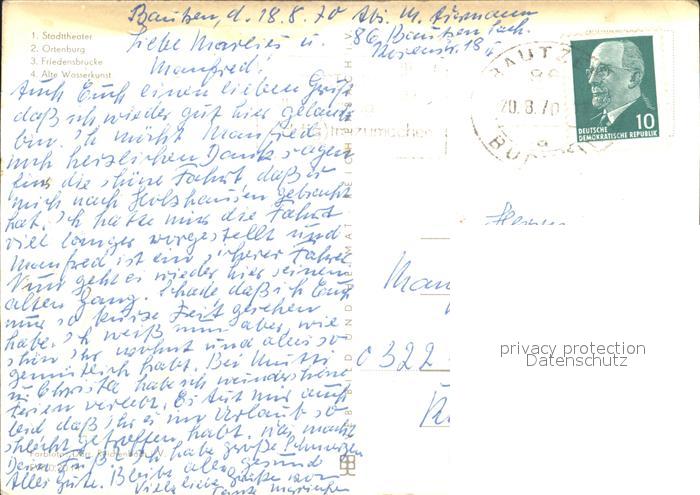 Bautzen, d. 18.8.70 Abs. M.
86 Bautzen
18
1. Stadttheater
2. Ortenburg
3. Friedensbrücke
4. Alte Wasserkunst
Liebe Marlies u.
Manfred!
Auch Euch einen lieben Gruß
daß ich wieder gut hier gelandet
bin. Ich möcht Manfred
noch herzlichen Dank sagen
für die schöne Fahrt daß er
mich nach Holzhausen gebracht
hat. Ich hatte mir die Fahrt
viel länger vorgestellt und
Manfred ist ein sicherer Fahrer
Nun geht es wieder hier seinen
alten Gang. Schade daß ich Euch
nur so kurze Zeit gesehen
habe. Ich weiß nun aber, wie
schön Ihr wohnt und alles so
gemütlich habt. Bei Mutti
u. Christa habe ich wunderschöne
Ferien verlebt. Es tut mir auch
leid daß Ihr es im Urlaub so
schlecht getroffen habt. Was macht
Dein Fuß? Ich habe große Schmerzen
Alles Gute. Bleibt alle gesund
Viele liebe Grüße von
BAUTZEN
20.8.70
10
DEUTSCHE
DEMOKRATISCHE REPUBLIK
Man
0322
privacy protection
Datenschutz